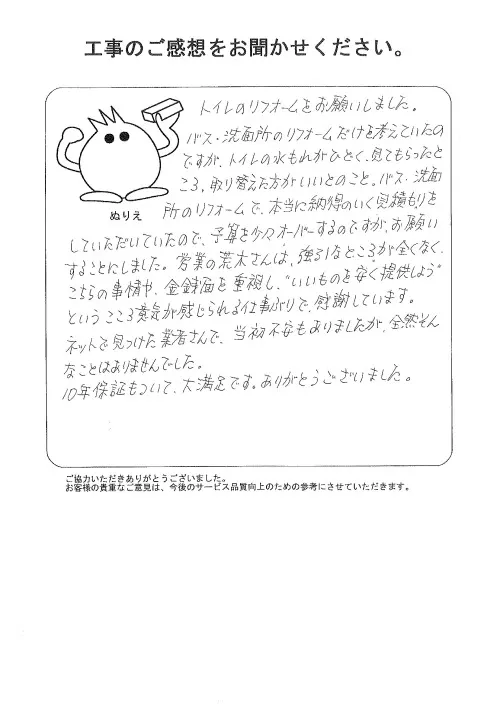 工事のご感想をお聞かせください。
トイレのリフォームをお願いしました。
バス・洗面所のリフォームだけを考えていたの
ですが、トイレの水もれがひどく、見てもらったと
ころ、取り替えた方がいいとのこと。バス・洗面
ぬりえ
所のリフォームで、本当に納得のいく見積もりを
していただいていたので、予算を少々オーバーするのですが、お願い
することにしました。営業の荒木さんは、強引なところが全くなく、
こちらの事情や、金銭面を重視し、"いいものを安く提供しよう"
というこころ意気が感じられる仕事ぶりで、感謝しています。
ネットで見つけた業者さんで、当初不安もありましたが、全然そん
なことはありませんでした。
10年保証もついて、大満足です。ありがとうございました。
ご協力いただきありがとうございました。
お客様の貴重なご意見は、今後のサービス品質向上のための参考にさせていただきます。